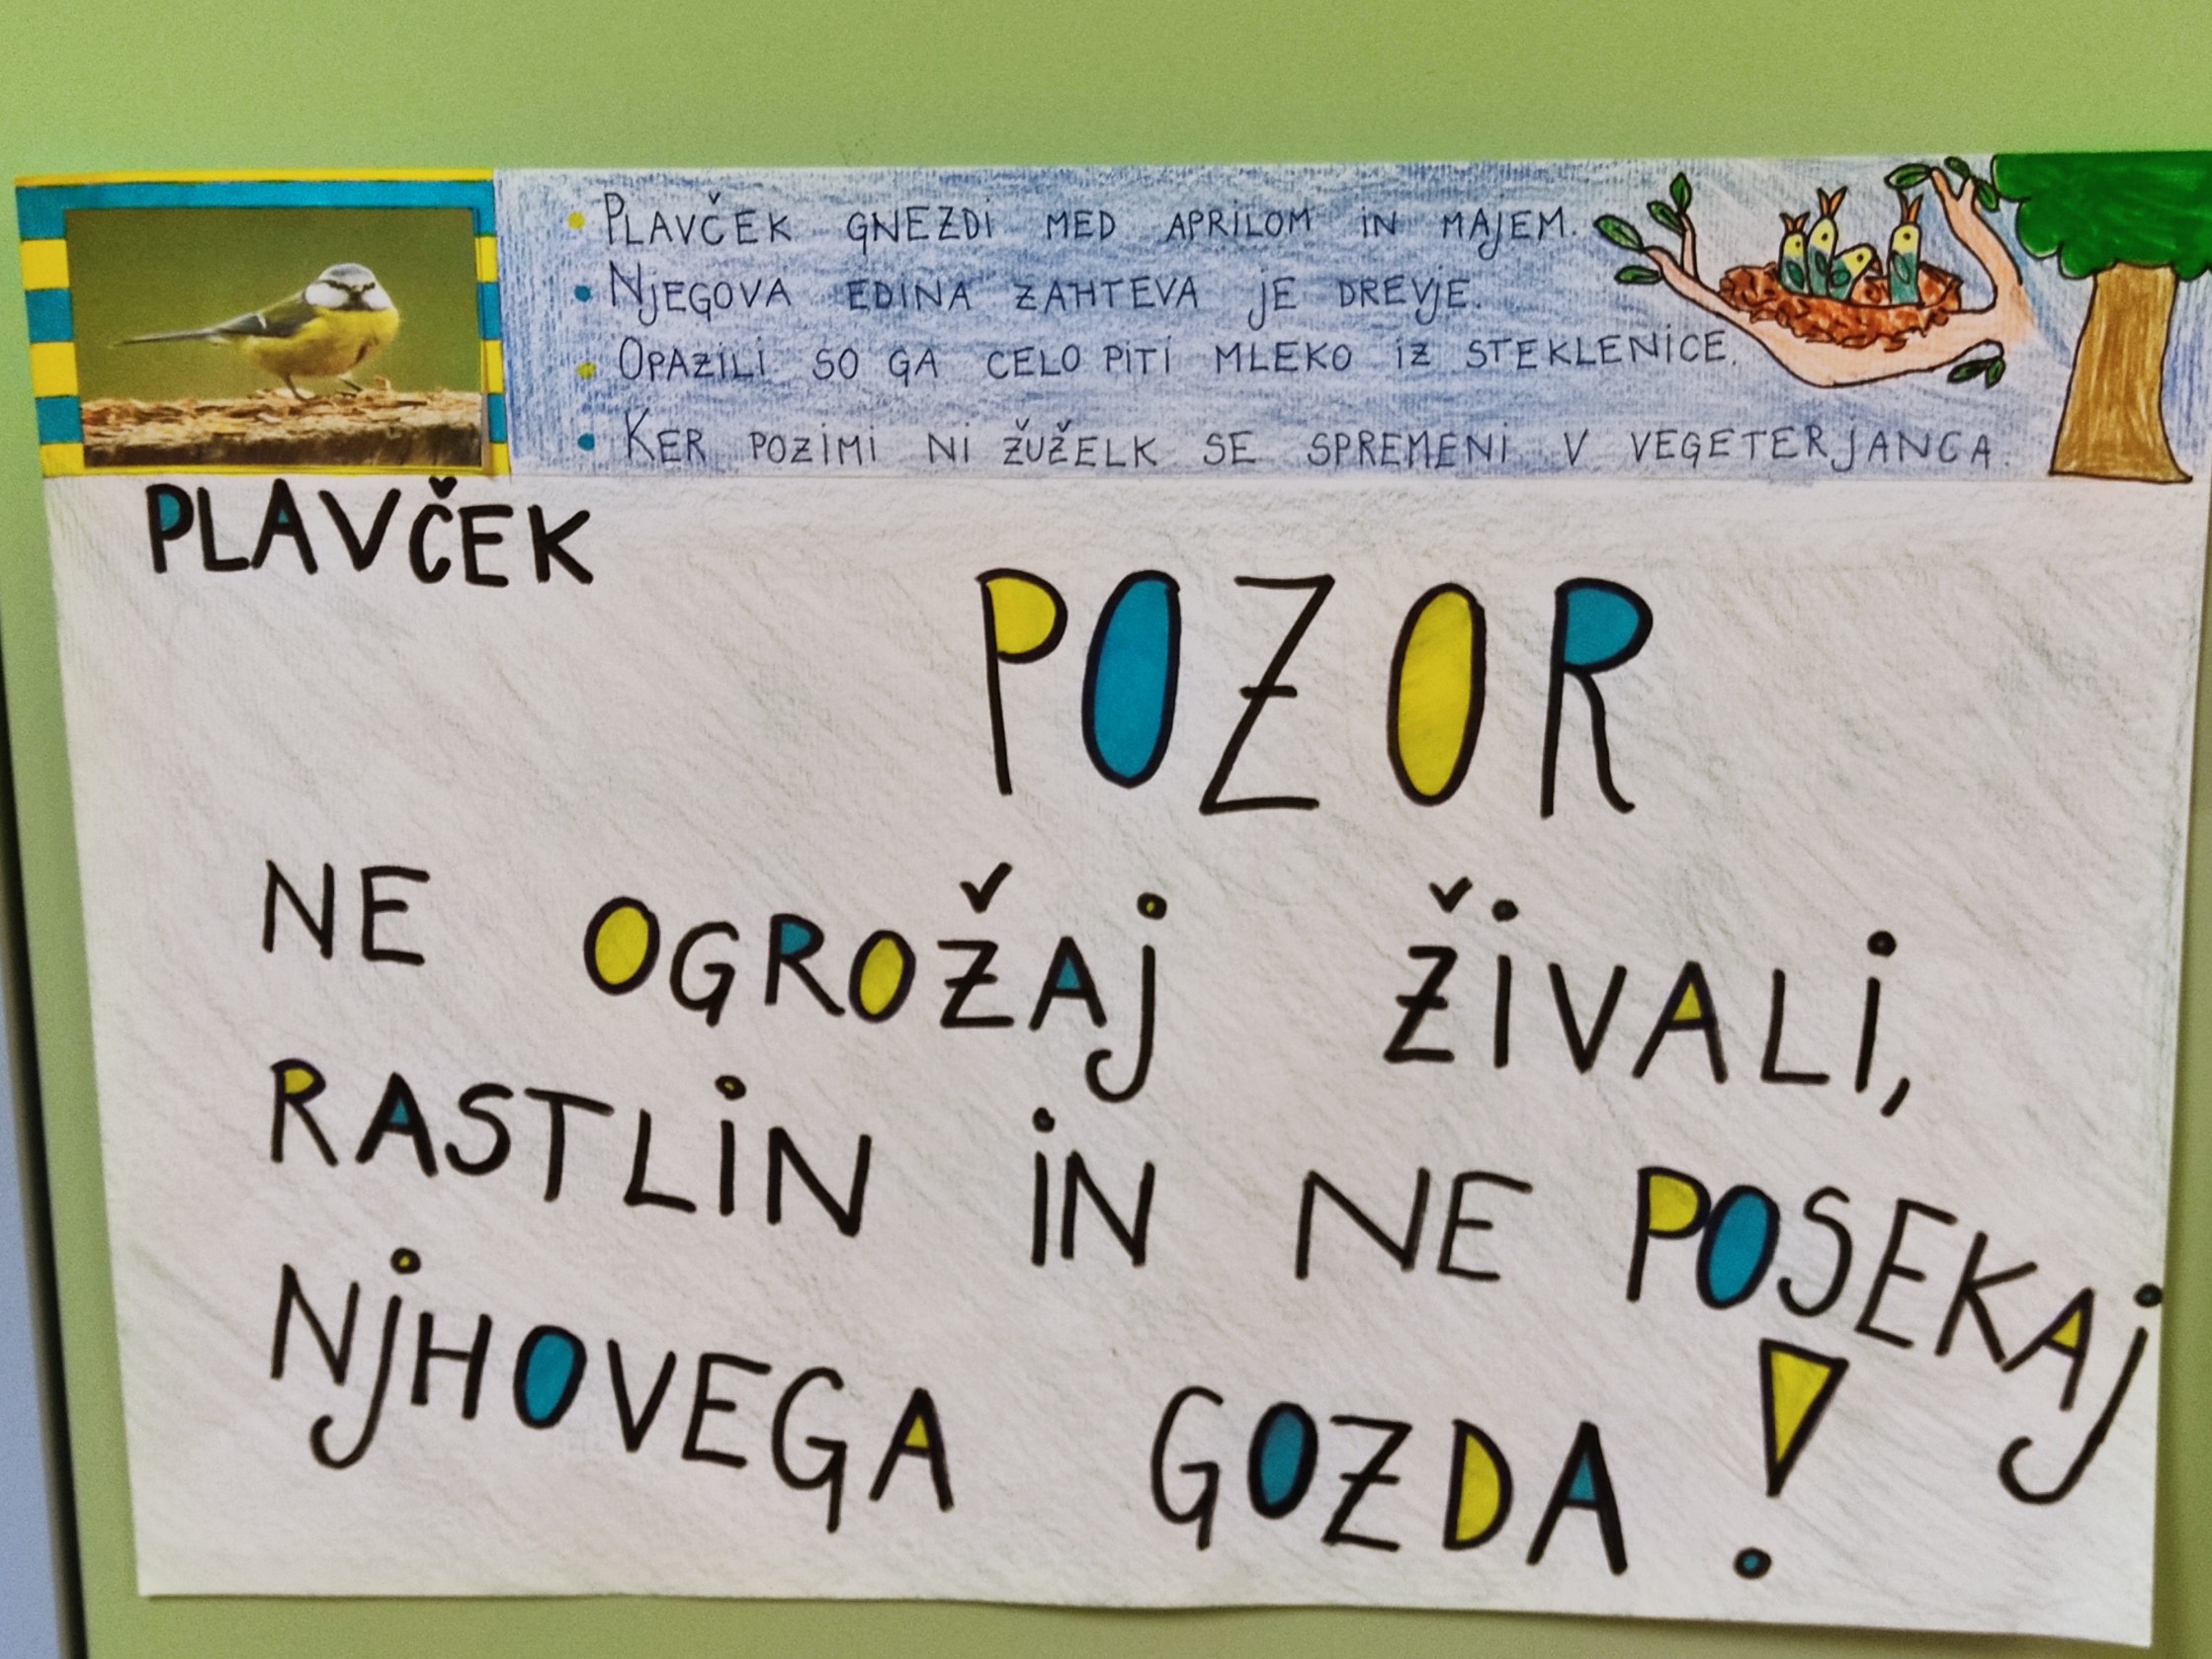 PLAVČEK GNEZDI MED APRILOM IN MAJEM.
NJEGOVA EDINA ZAHTEVA JE DREVJE.
OPAZILI SO GA CELO PITI MLEKO IZ STEKLENICE.
KER POZIMI NI ŽUŽELK SE SPREMENI V VEGETERJANCA.
PLAVČEK
POZOR
NE OGROŽAJ ŽIVALI,
RASTLIN IN NE POSEKAJ
NJHOVEGA GOZDA!